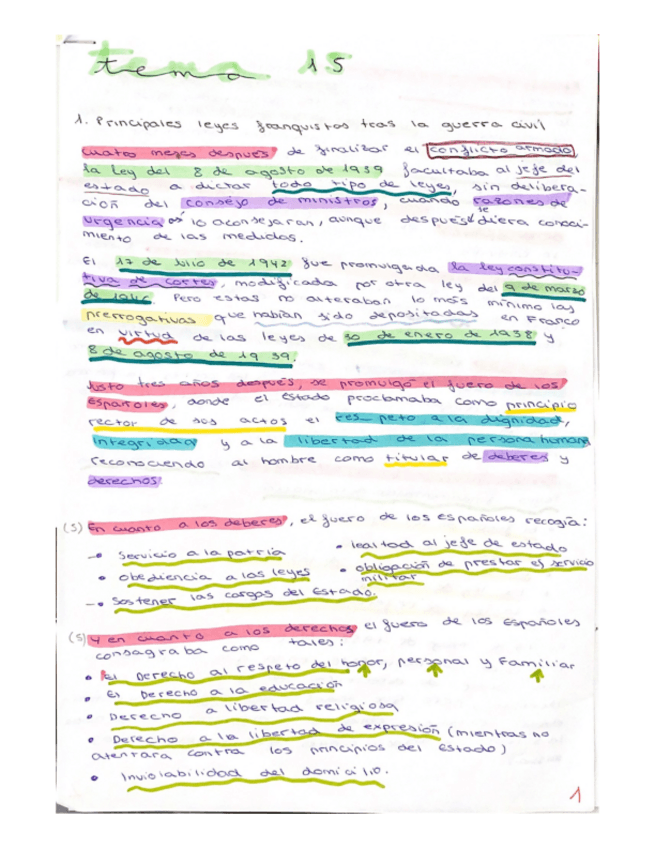 tema 15
1. Principales leyes franquistas tras la guerra civil
Cuatro meses después de finalizar el conflicto armado
la ley del 8 de agosto de 1939 facultaba al jefe del
estado a dictar todo tipo de leyes, sin delibera-
ción del consejo de ministros, cuando razones de
urgencia así lo aconsejaran, aunque después se diera conoci-
miento de las medidas.
El 17 de Julio de 1942 fue promulgada la ley constitu-
tiva de cortes, modificada por otra ley del 9 de marzo
de 1946. Pero estas no alteraban lo más mínimo las
prerrogativas que habían sido depositadas en Franco
en virtud de las leyes de 30 de enero de 1938 y
8 de agosto de 1939.
Justo tres años después, se promulgó el fuero de los
españoles, donde el Estado proclamaba como principio
rector de sus actos el respeto a la dignidad,
integridad y a la libertad de la persona humana
reconociendo al hombre como titular de deberes y
derechos.
(5) En cuanto a los deberes, el fuero de los españoles recogía:
→ Servicio a la patria
• lealtad al jefe de estado
• obediencia a las leyes
• obligación de prestar el servicio
militar
→ Sostener las cargas del Estado.
(5) Y en cuanto a los derechos, el fuero de los españoles
consagraba como tales:
• El Derecho al respeto del honor, personal y Familiar
• El Derecho a la educación
• Derecho a libertad religiosa
• Derecho a la libertad de expresión (mientras no
atentara contra los principios del Estado)
• Inviolabilidad del domicilio.
1